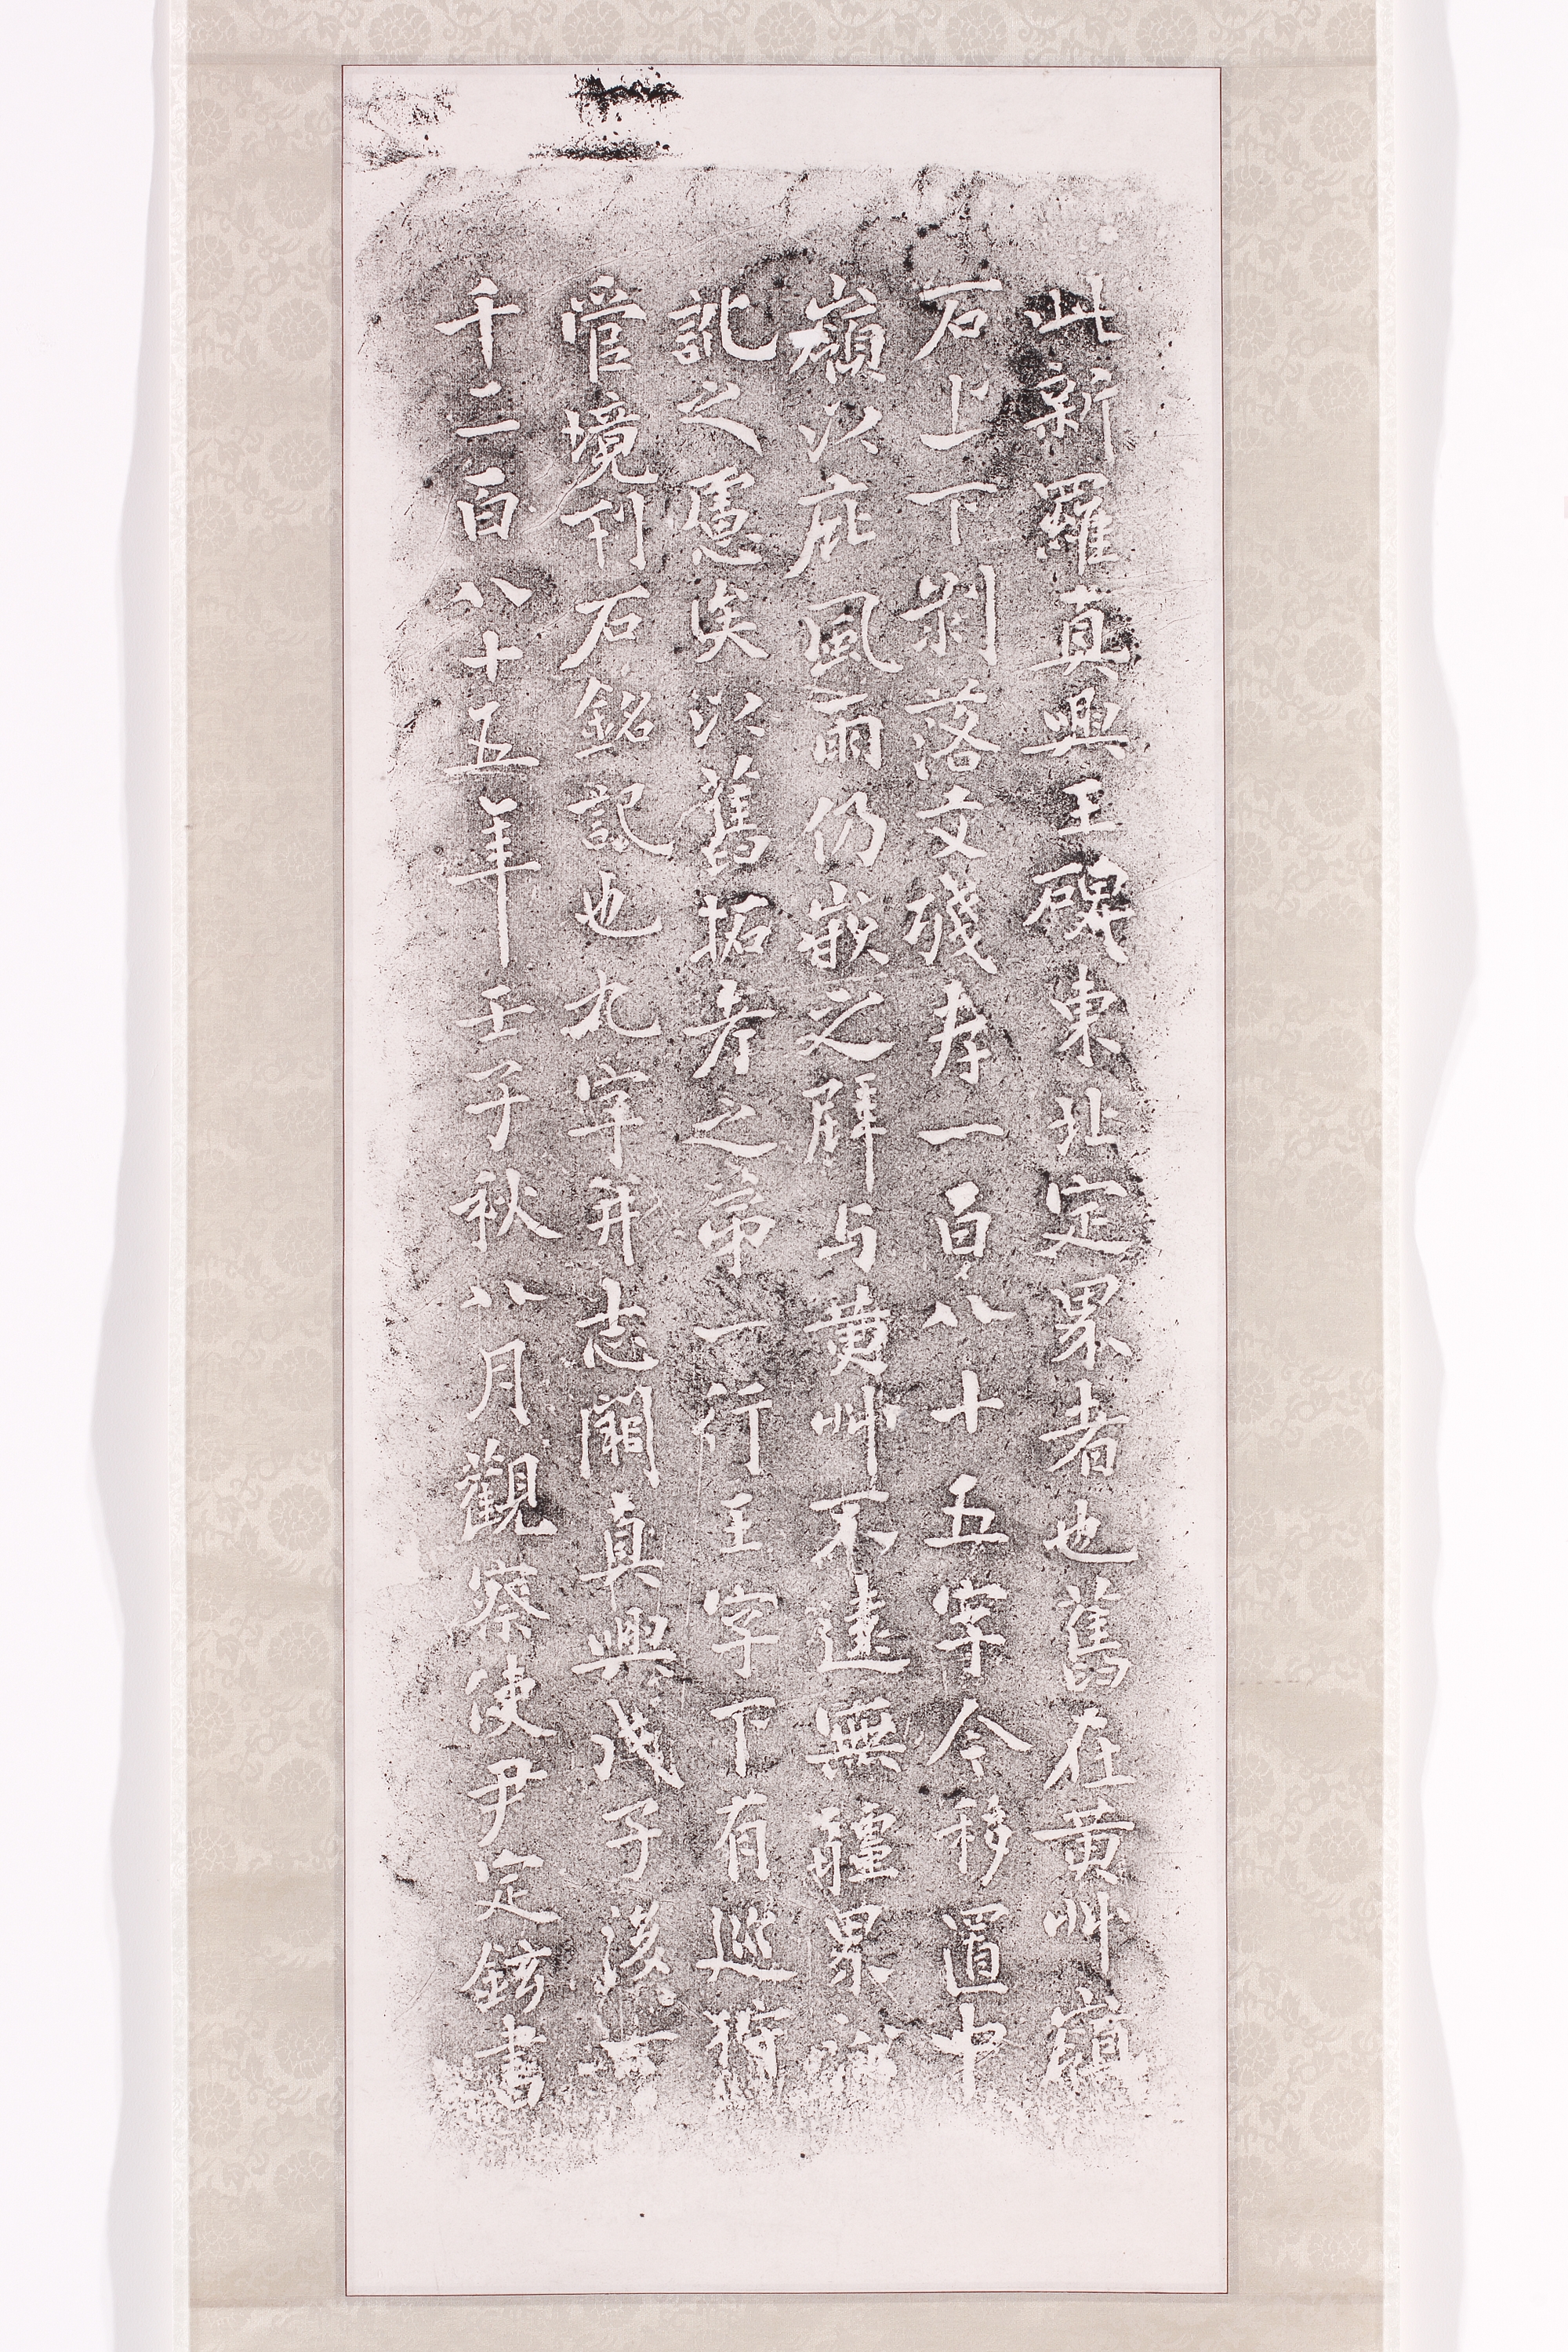 此新羅真興王碑東北定界者也舊在黃艸嶺
石上下剝落文殘存一百八十五字今移置中
嶺以庇風雨仍嵌之壁与黃艸不遠無疆界
訛之慮矣以舊拓考之第一行王字下有巡狩
管境刊石銘記也九字并志闕真興戊子後
千二百八十五年壬子秋八月觀察使尹定鉉書